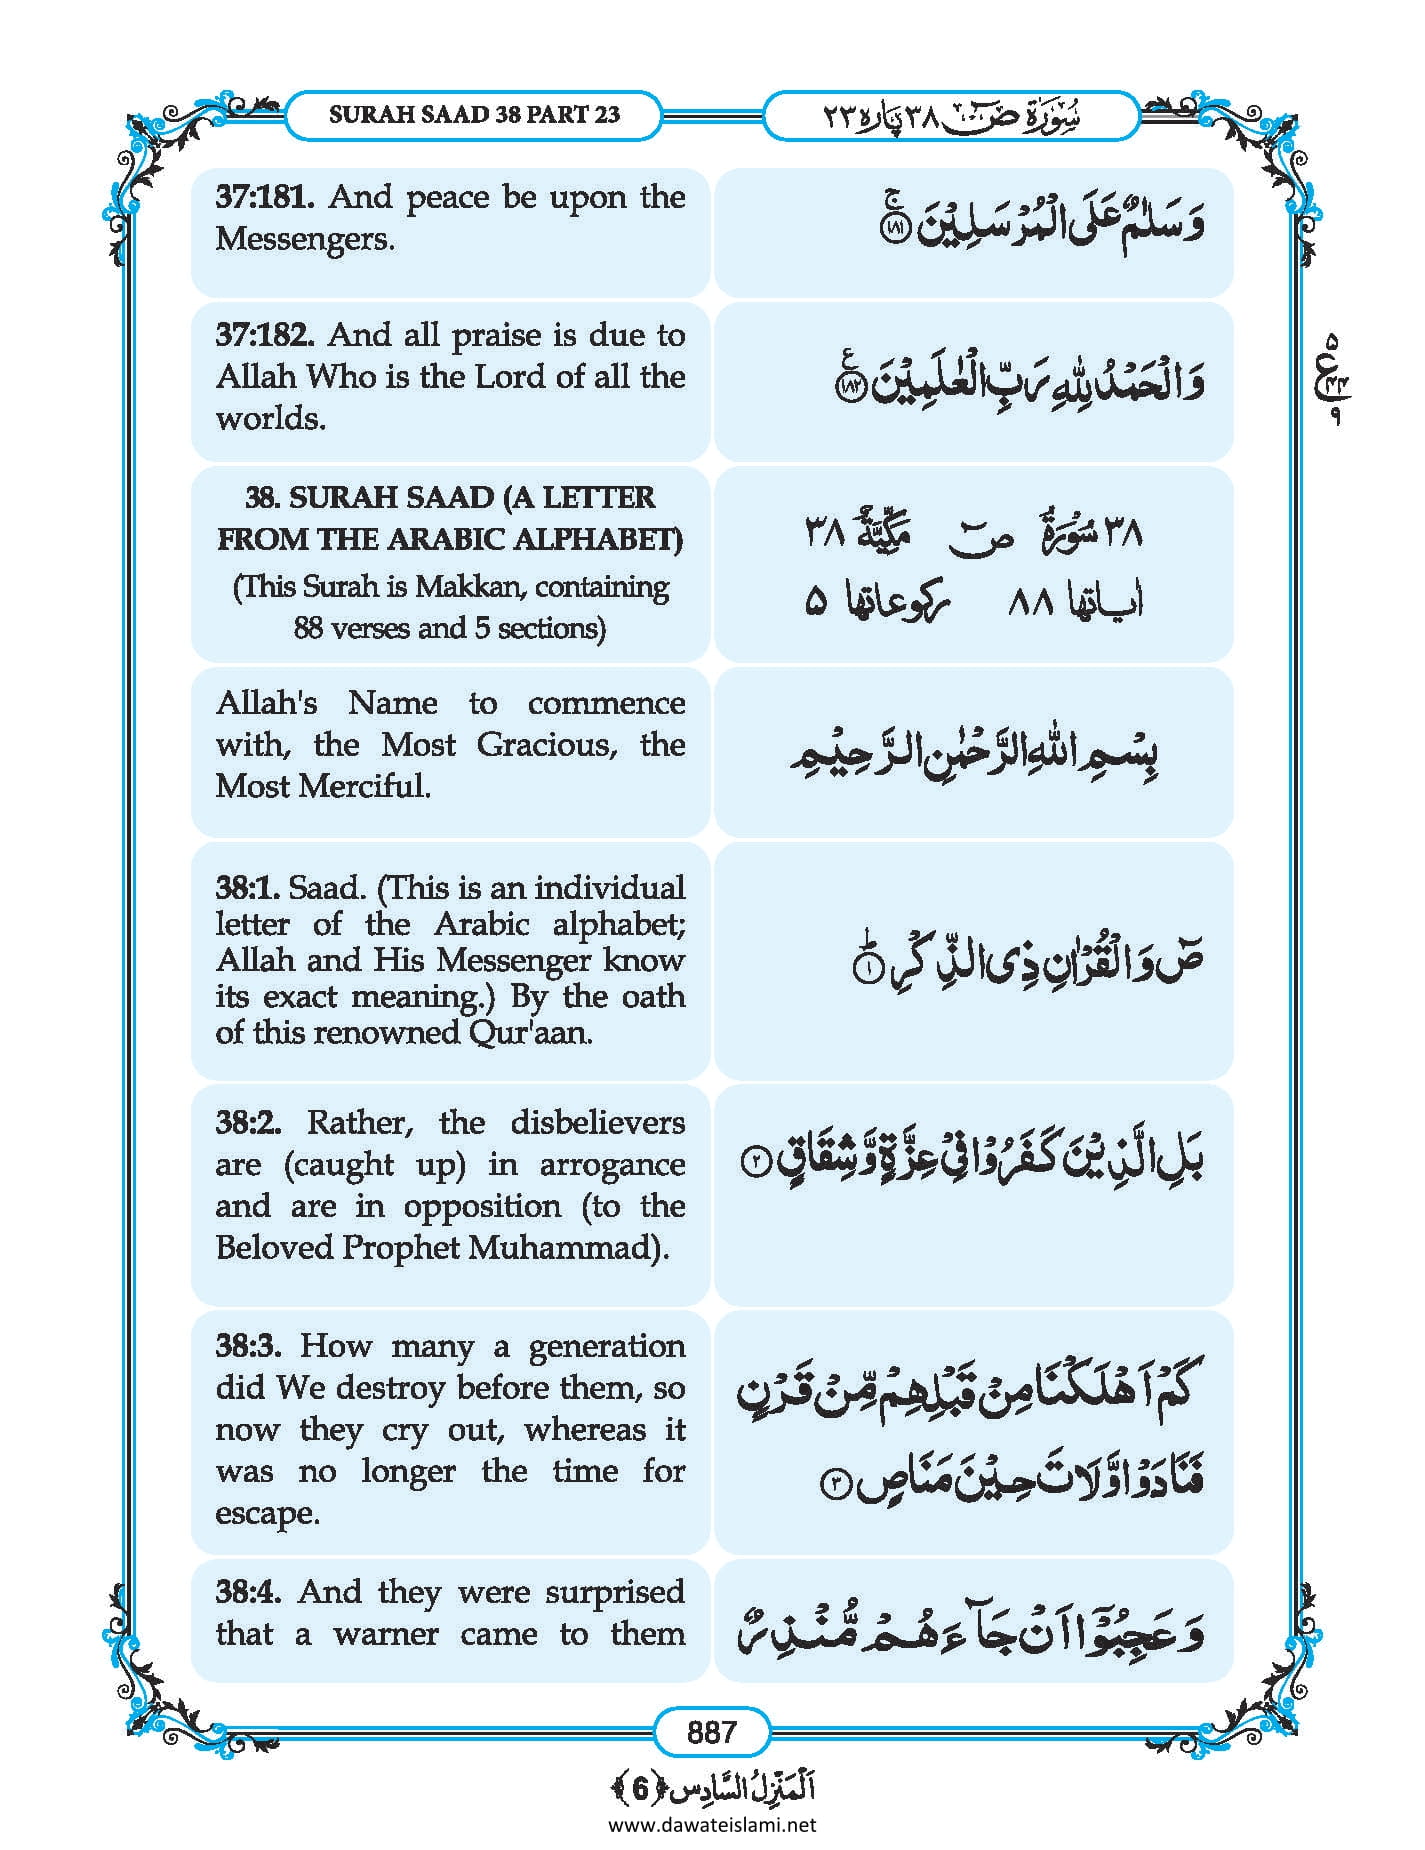 SURAH SAAD 38 PART 23
سُوْرَةُ صٓ ۳۸ پارہ ۲۳
37:181. And peace be upon the
Messengers.
وَ سَلٰمٌ عَلَى الْمُرْسَلِیْنَۚ(۱۸۱)
37:182. And all praise is due to
Allah Who is the Lord of all the
worlds.
وَ الْحَمْدُ لِلّٰهِ رَبِّ الْعٰلَمِیْنَ۠(۱۸۲)
۵
ع
۹
38. SURAH SAAD (A LETTER
FROM THE ARABIC ALPHABET)
(This Surah is Makkan, containing
88 verses and 5 sections)
۳۸ سُوْرَةُ صٓ مَكِّیَّةٌ ۳۸
اٰیاتها ۸۸ رکوعاتها ۵
Allah's Name to commence
with, the Most Gracious, the
Most Merciful.
بِسْمِ اللّٰهِ الرَّحْمٰنِ الرَّحِیْمِ
38:1. Saad. (This is an individual
letter of the Arabic alphabet;
Allah and His Messenger know
its exact meaning.) By the oath
of this renowned Qur'aan.
صٓ وَ الْقُرْاٰنِ ذِی الذِّكْرِؕ(۱)
38:2. Rather, the disbelievers
are (caught up) in arrogance
and are in opposition (to the
Beloved Prophet Muhammad).
بَلِ الَّذِیْنَ كَفَرُوْا فِیْ عِزَّةٍ وَّ شِقَاقٍ(۲)
38:3. How many a generation
did We destroy before them, so
now they cry out, whereas it
was no longer the time for
escape.
كَمْ اَهْلَكْنَا مِنْ قَبْلِهِمْ مِّنْ قَرْنٍ
فَنَادَوْا وَّ لَاتَ حِیْنَ مَنَاصٍ(۳)
38:4. And they were surprised
that a warner came to them
وَ عَجِبُوْۤا اَنْ جَآءَهُمْ مُّنْذِرٌ
887
اَلْمَنْزِلُ السَّادِس ﴿6﴾
www.dawateislami.net